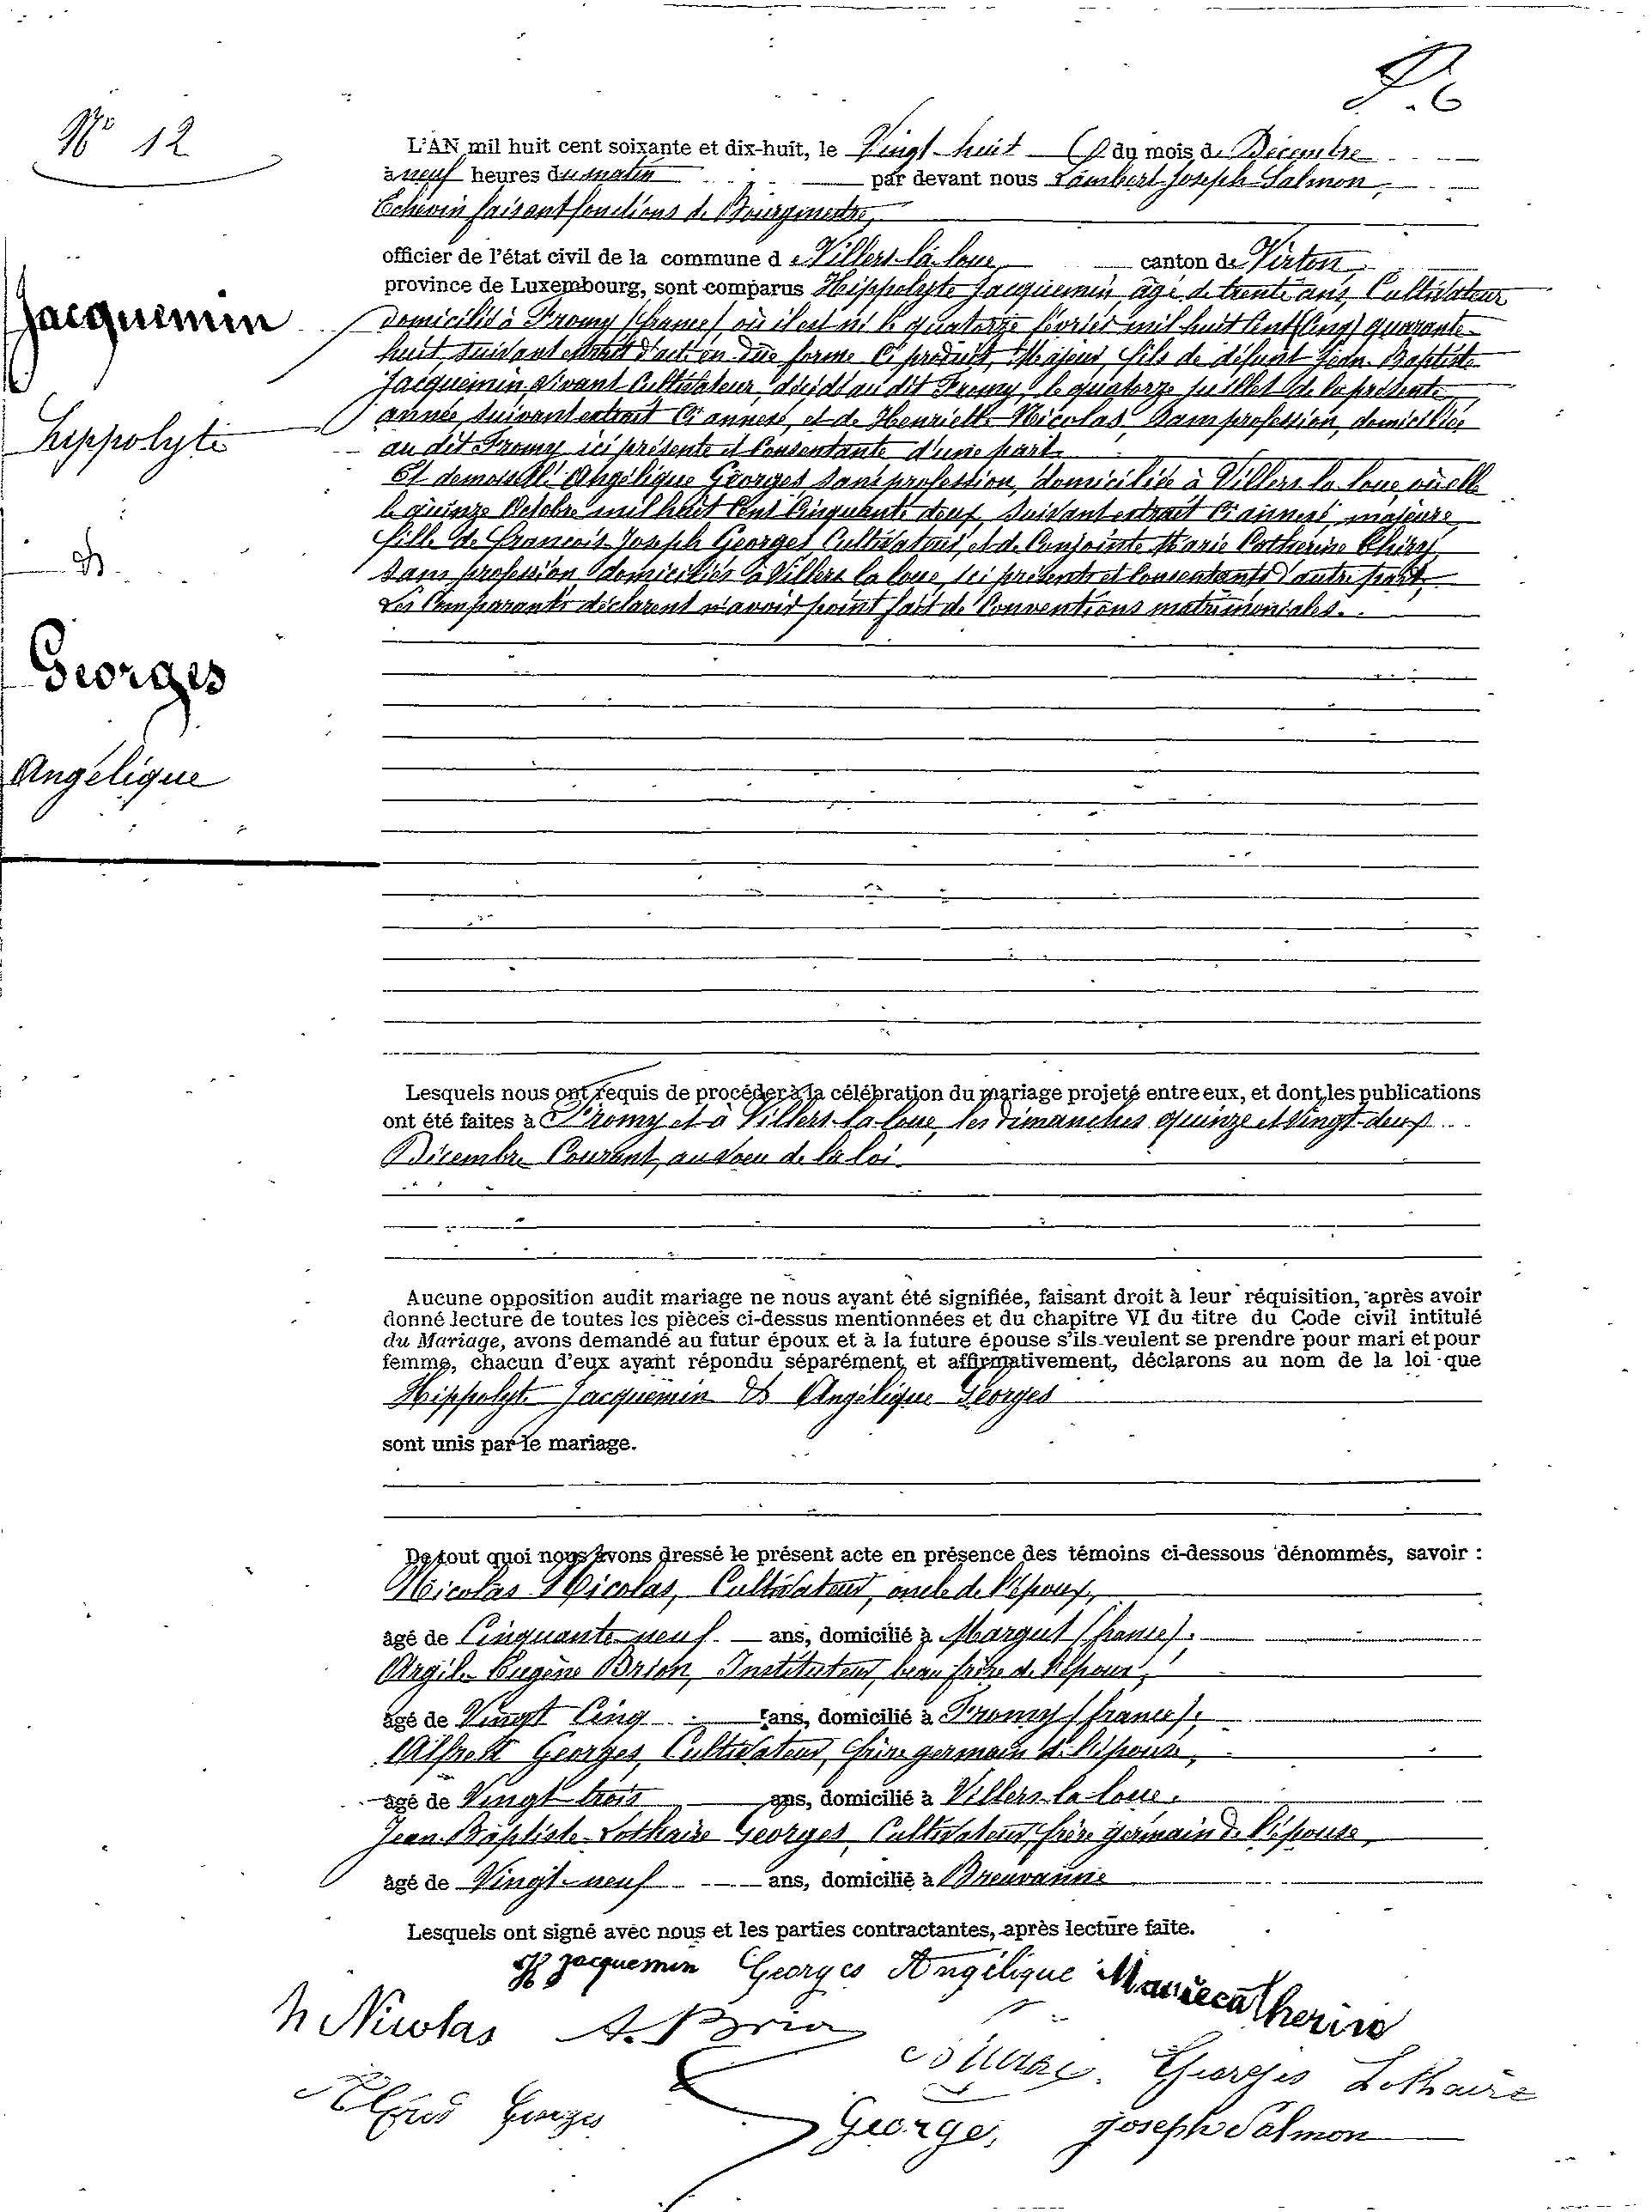 P. 6
N° 12
L'AN mil huit cent soixante et dix-huit, le Vingt-huit du mois de Décembre
à neuf heures du matin par devant nous Lambert Joseph Salmon,
Echevin faisant fonctions de Bourgmestre,
officier de l'état civil de la commune de Villers-la-loue canton de Virton
province de Luxembourg, sont comparus Hippolyte Jacquemin âgé de trente ans, Cultivateur
Jacquemin
domicilié à Fromy (france) où il est né le quatorze février mil huit Cent (Cinq) quarante-
huit, suivant extrait d'acte en due forme Ci produit, Majeur, fils de défunt Jean-Baptiste
Jacquemin, vivant Cultivateur, décédé au dit Fromy, le quatorze juillet de la présente
année, suivant extrait Ci annexé, et de Henriette Nicolas, Sans profession, domiciliée
Hippolyte
au dit Fromy ici présente et Consentante d'une part.
Et demoiselle Angélique Georges sans profession, domiciliée à Villers la loue, où elle
le quinze Octobre mil huit Cent Cinquante deux, suivant extrait Ci annexé, majeure,
fille de francois Joseph Georges Cultivateur, et de Conjointe Marie Catherine Thiry
&
sans profession domiciliés à Villers la loue, ici présents et Consentants d'autre part.
Les Comparants déclarent n'avoir point fait de Conventions matrimoniales.
Georges
Angélique
Lesquels nous ont requis de procéder à la célébration du mariage projeté entre eux, et dont les publications
ont été faites à Fromy et à Villers-la-loue, les dimanches quinze et vingt-deux
Décembre Courant, au vœu de la loi.
Aucune opposition audit mariage ne nous ayant été signifiée, faisant droit à leur réquisition, après avoir
donné lecture de toutes les pièces ci-dessus mentionnées et du chapitre VI du titre du Code civil intitulé
du Mariage, avons demandé au futur époux et à la future épouse s'ils veulent se prendre pour mari et pour
femme, chacun d'eux ayant répondu séparément et affirmativement, déclarons au nom de la loi que
Hippolyte Jacquemin & Angélique Georges
sont unis par le mariage.
De tout quoi nous avons dressé le présent acte en présence des témoins ci-dessous dénommés, savoir :
Nicolas Nicolas, Cultivateur, oncle de l'époux,
âgé de Cinquante-neuf ans, domicilié à Margut (france).
Argile Eugène Brion, Instituteur, beau frère de l'époux,
âgé de Vingt Cinq ans, domicilié à Fromy (france),
Alfred Georges, Cultivateur, frère germain de l'épouse,
âgé de Vingt trois ans, domicilié à Villers-la-loue.
Jean-Baptiste Lothaire Georges, Cultivateur, frère germain de l'épouse,
âgé de Vingt-neuf ans, domicilié à Breuvanne
Lesquels ont signé avec nous et les parties contractantes, après lecture faite.
H Jacquemin Georges Angélique Marie catherine
N Nicolas A. Brion Georges Lothaire
Alfred Georges Georges, Joseph Salmon